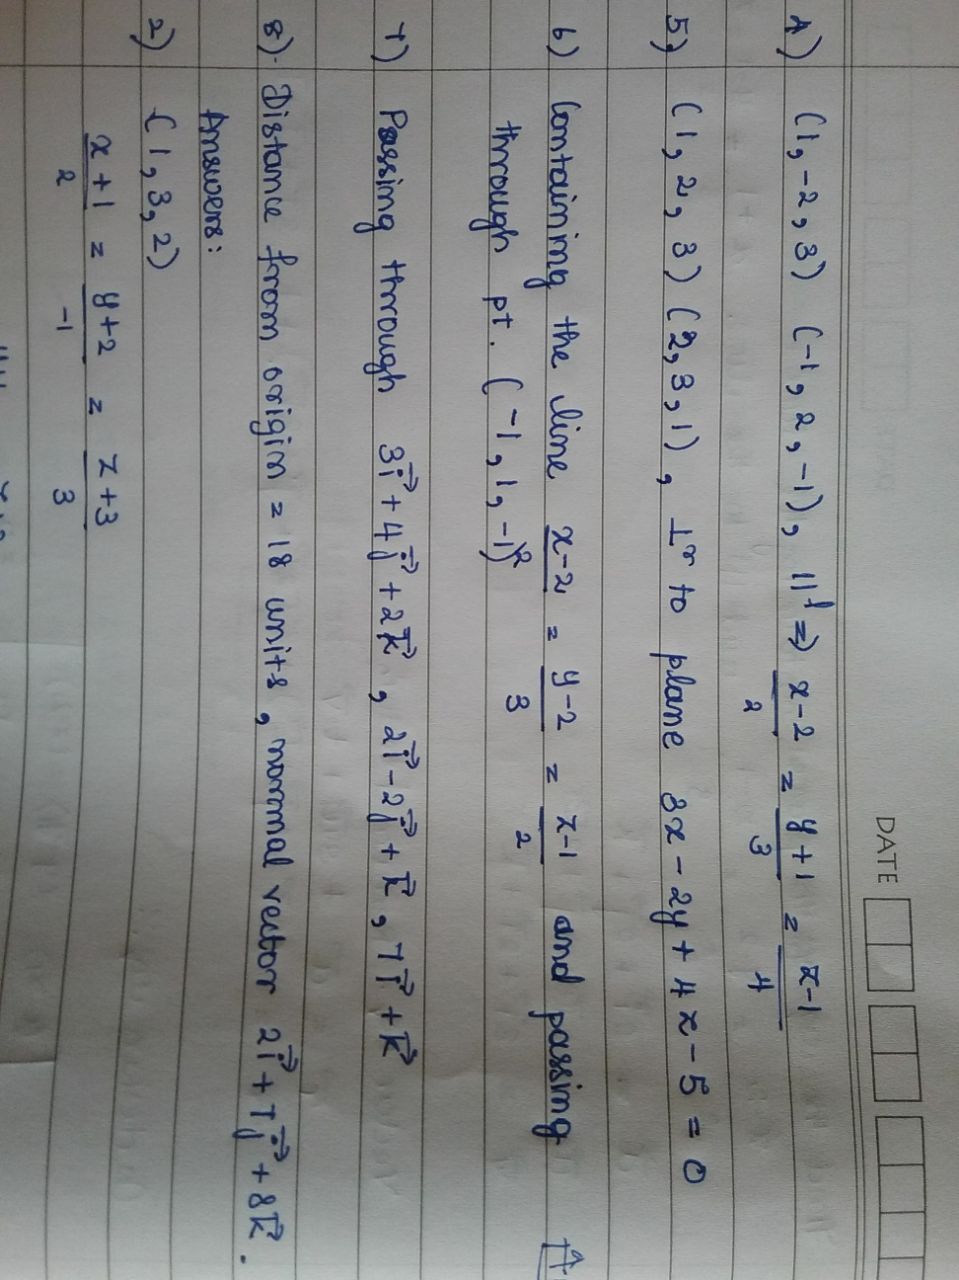 DATE
4) (1, -2, 3) (-1, 2, -1), ||l ⇒ x-2/2 = y+1/3 = z-1/4
5) (1, 2, 3) (2, 3, 1), ⊥r to plane 3x - 2y + 4z - 5 = 0
6) Containing the line x-2/2 = y-2/3 = z-1/2 and passing
through pt. (-1, 1, -1)
7) Passing through 3i⃗ + 4j⃗ + 2k⃗, 2i⃗ - 2j⃗ + k⃗, 7i⃗ + k⃗
8) Distance from origin = 18 units, normal vector 2i⃗ + 7j⃗ + 8k⃗.
Answers:
2) (1, 3, 2)
x+1/2 = y+2/-1 = z+3/3